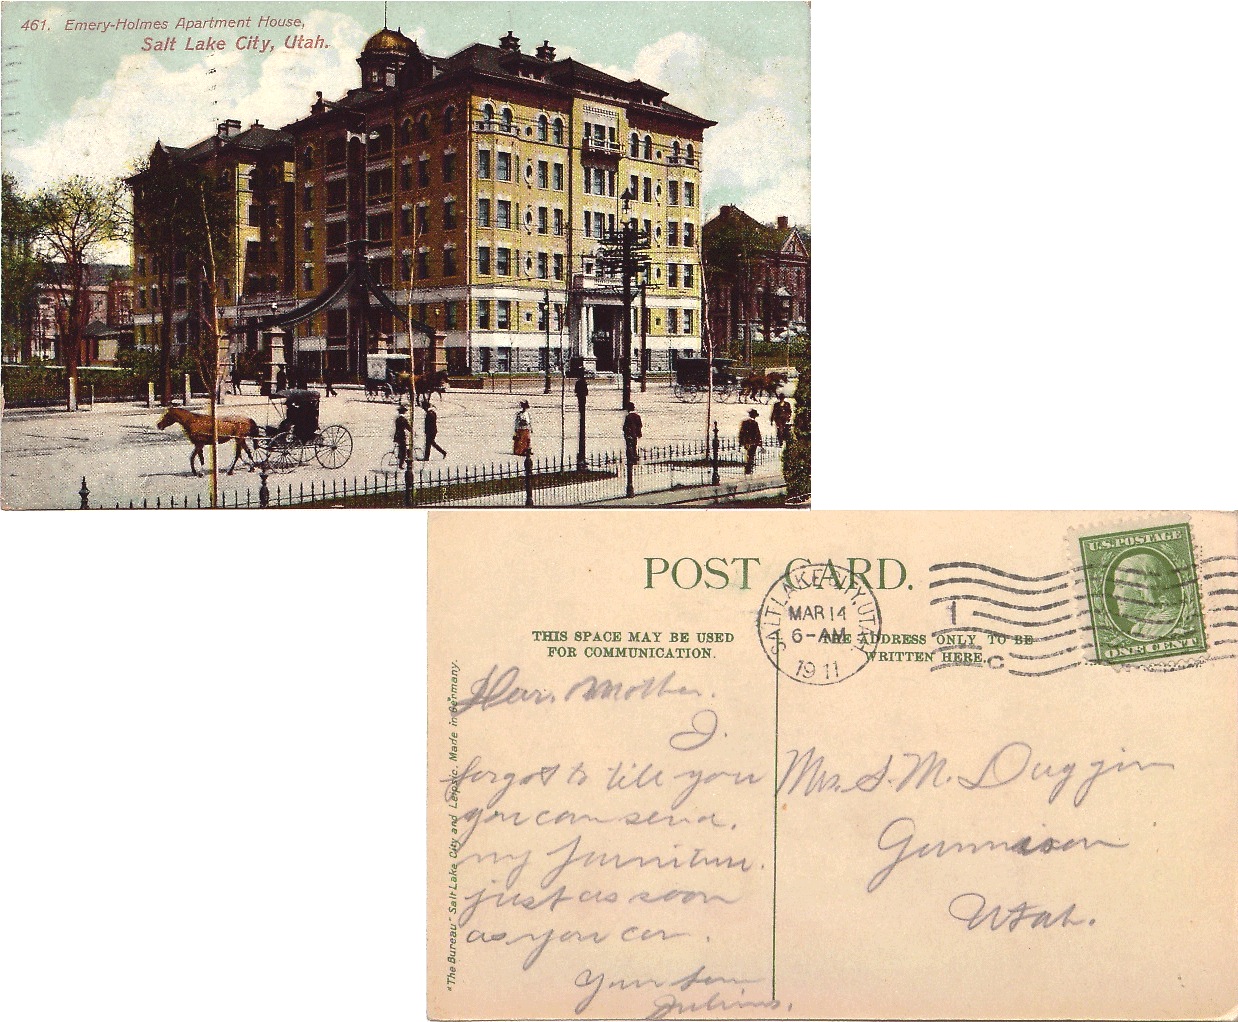 461. Emery-Holmes Apartment House,
Salt Lake City, Utah.
POST CARD.
THIS SPACE MAY BE USED
FOR COMMUNICATION.
THE ADDRESS ONLY TO BE
WRITTEN HERE.
SALT LAKE CITY, UTAH
MAR 14
6-AM
1911
1
C
U.S. POSTAGE
ONE CENT
"The Bureau" Salt Lake City and Leipsic. Made in Germany.
Dear Mother.
I.
forgot to tell you
you can send.
my furniture.
just as soon
as you can.
Your Son
Julius.
Mrs. S. M. Duggin
Gunnison
Utah.